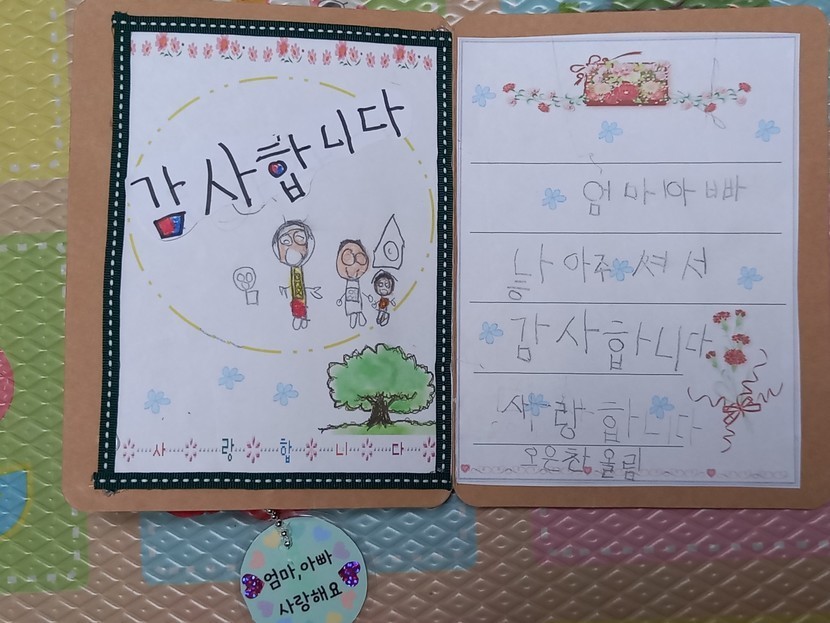 감사합니다
사랑합니다
엄마아빠
낳아주셔서
감사합니다
사랑합니다
오은찬 올림
엄마,아빠
사랑해요